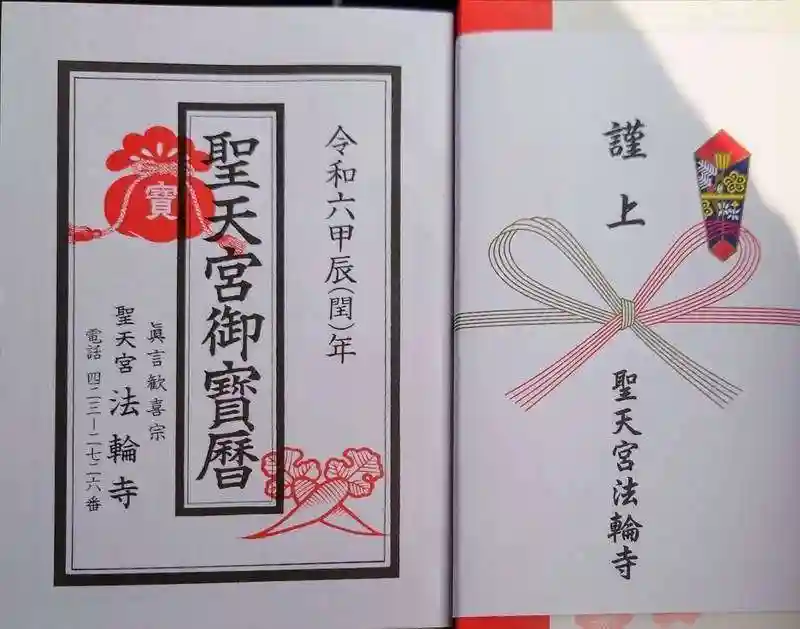 令和六甲辰(閏)年
聖天宮御寳暦
寳
眞言歓喜宗
聖天宮 法輪寺
電話 四二三ー二七二六番
謹上
聖天宮法輪寺